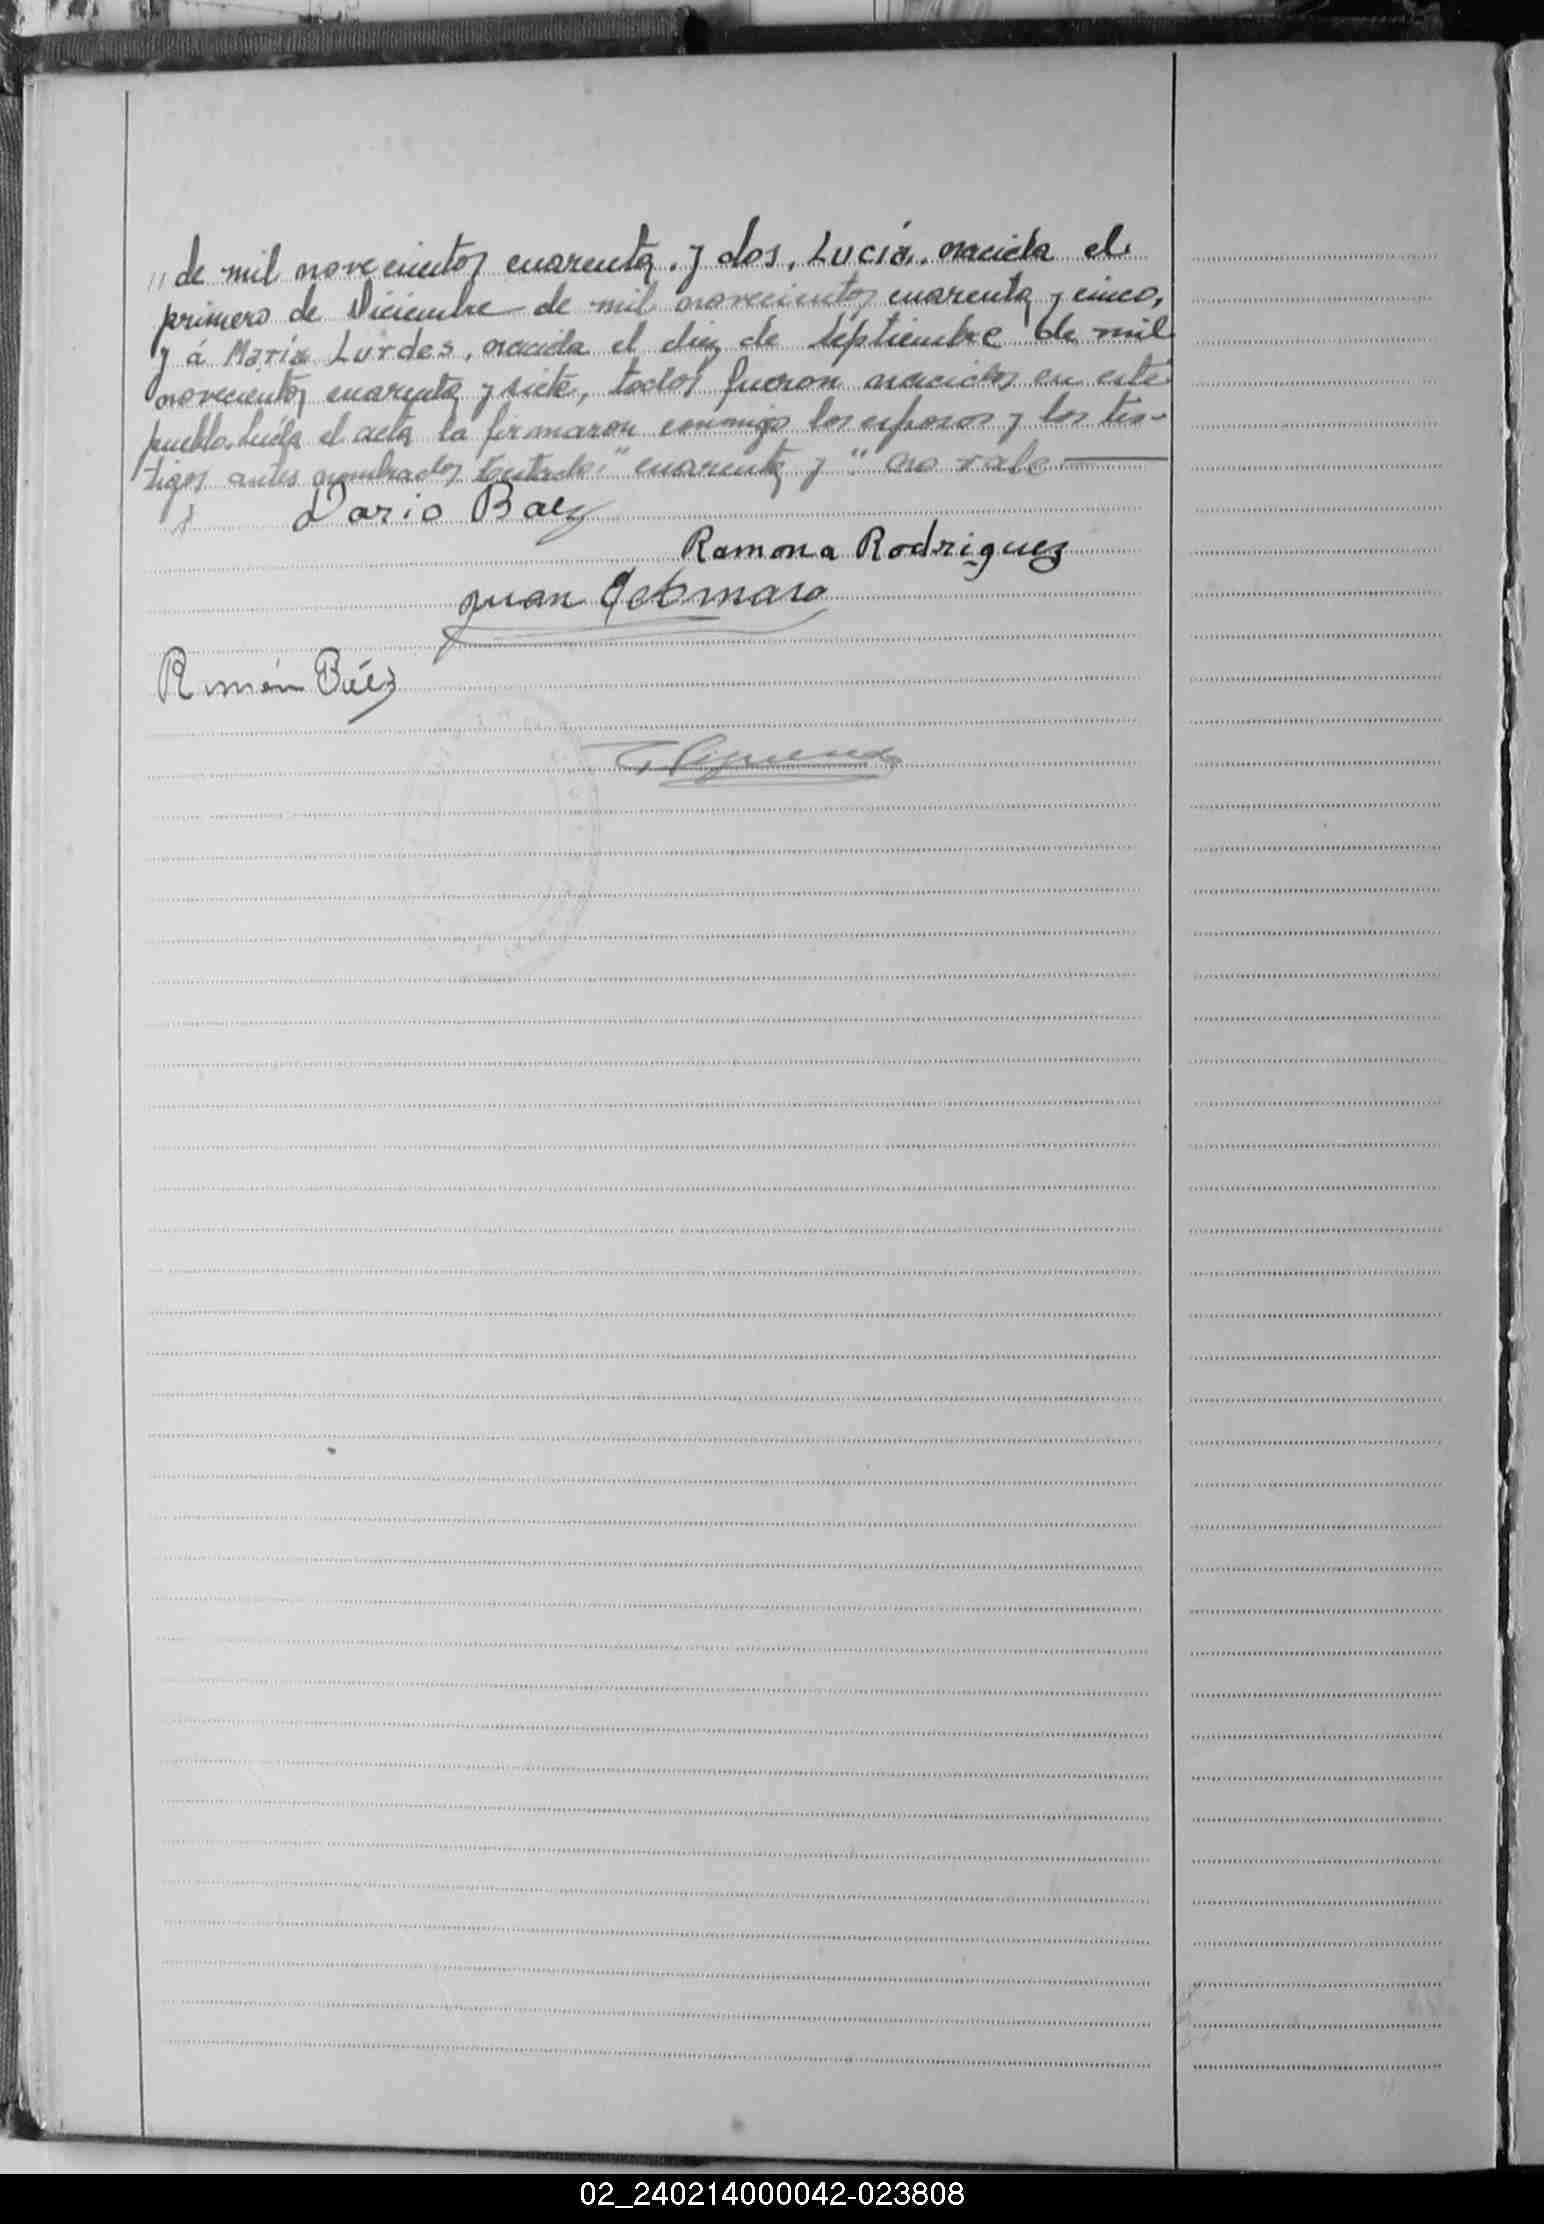 "de mil novecientos cuarenta. y dos, Lucía. nacida el
primero de Diciembre de mil novecientos cuarenta y cinco,
y á María Lurdes, nacida el diez de Septiembre de mil
novecientos cuarenta y siete, todos fueron nacidos en este
pueblo. Leída el acta la firmaron conmigo los esposos y los tes-
tigos antes nombrados testado: "cuarenta y" no vale
Dario Baez
Ramona Rodriguez
Juan
Ramón Báez
02_240214000042-023808